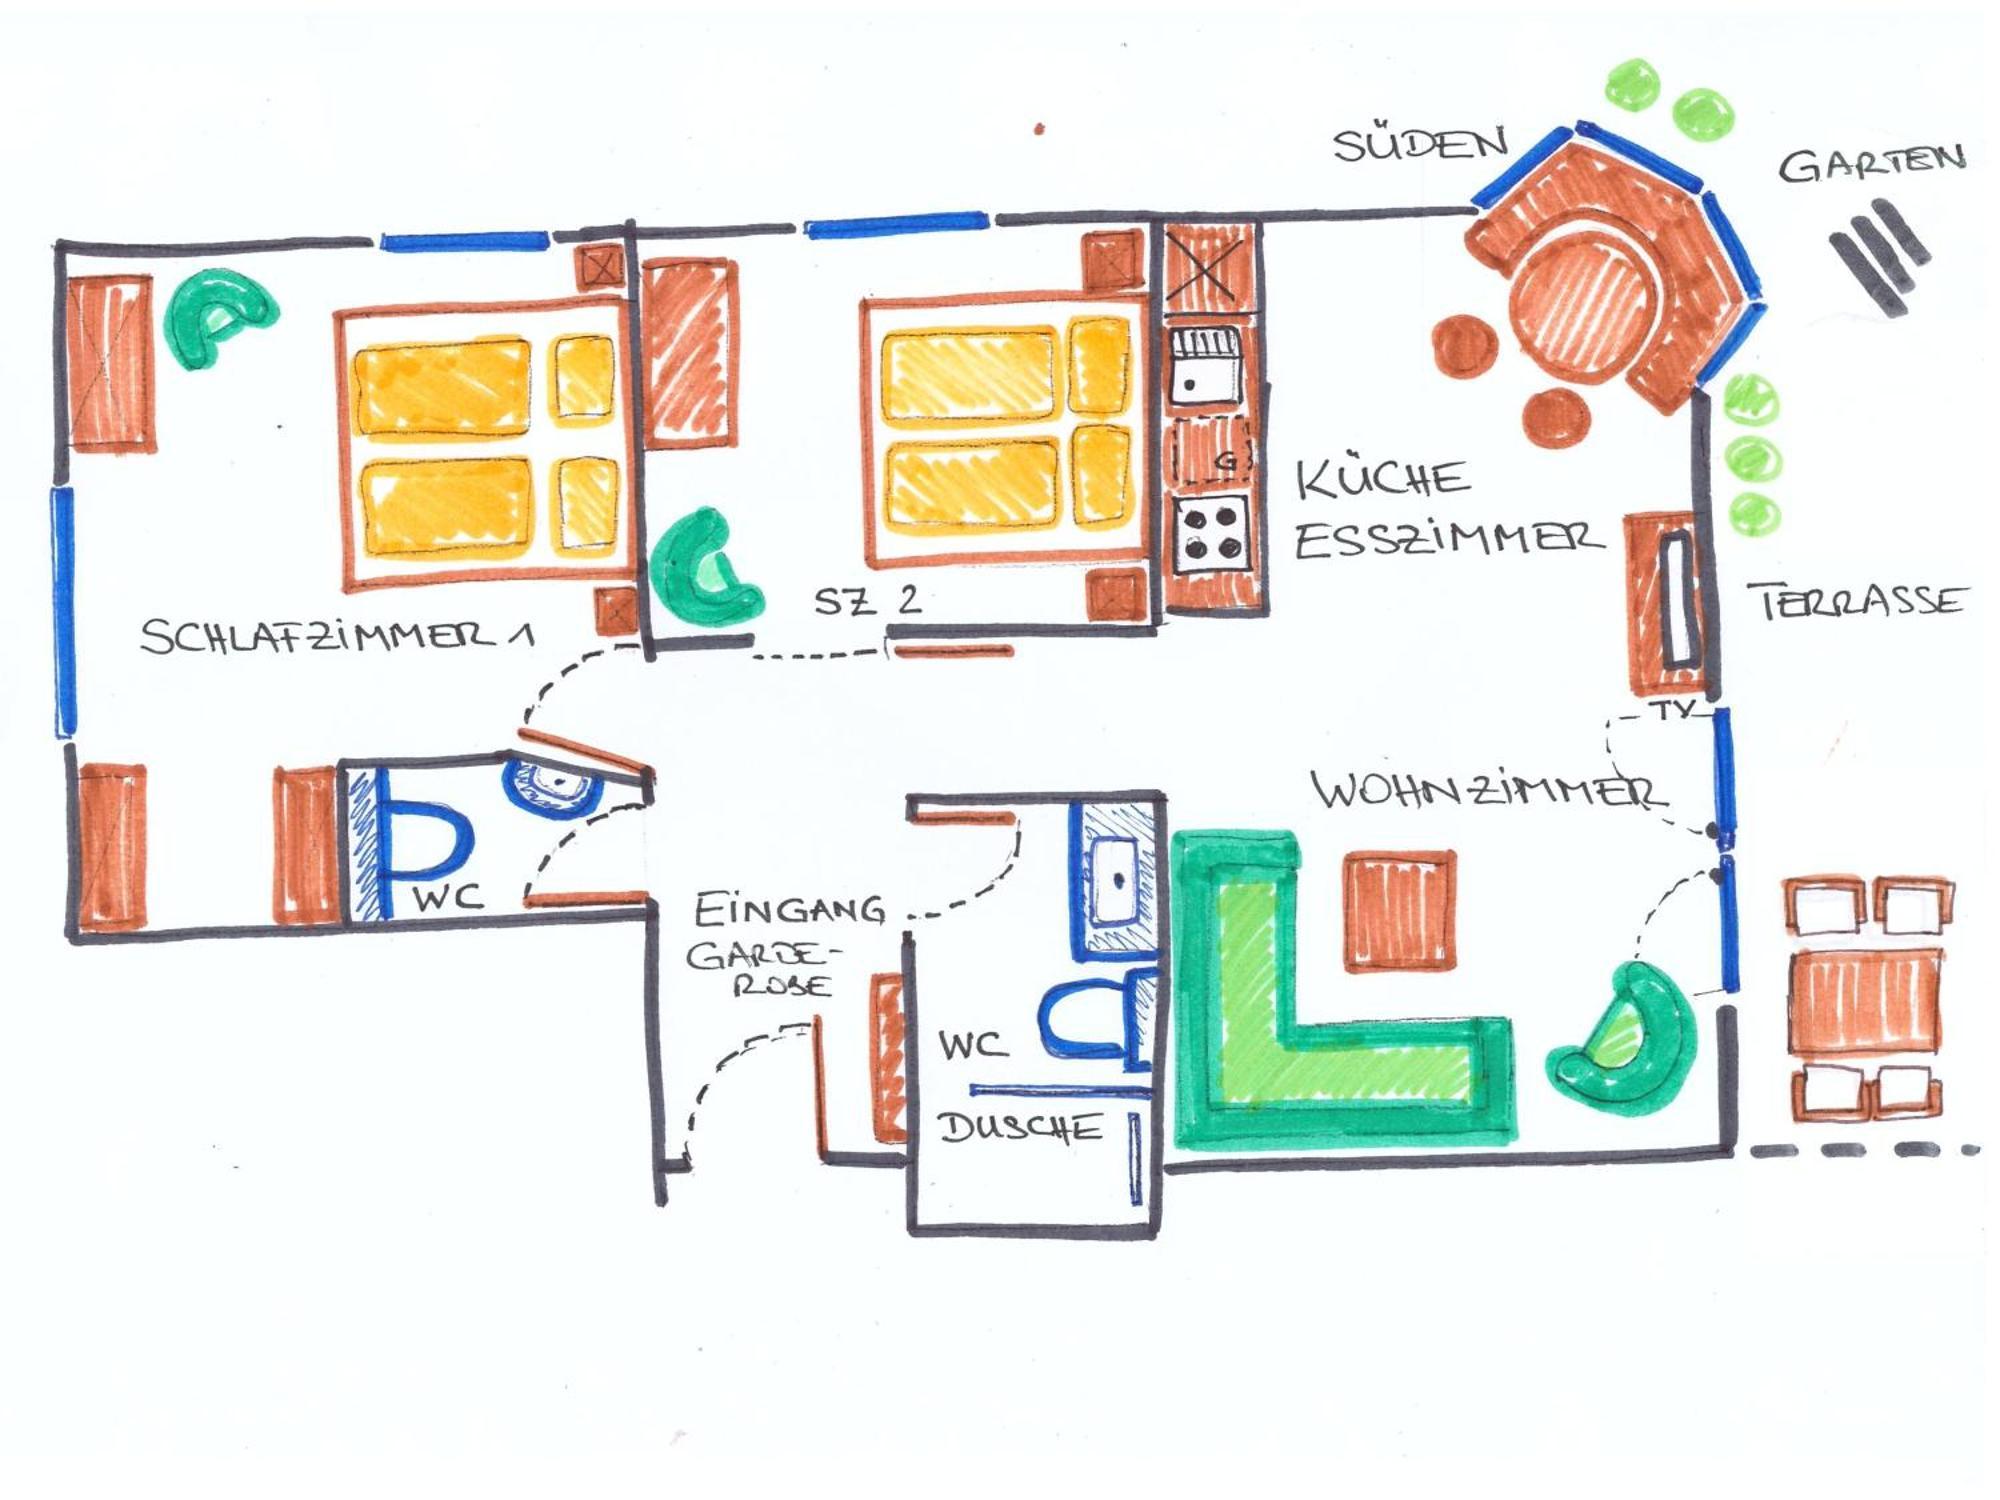 SÜDEN
GARTEN
G
KÜCHE
ESSZIMMER
SZ 2
TERRASSE
SCHLAFZIMMER 1
TV
WOHNZIMMER
WC
EINGANG
GARDE-
ROBE
WC
DUSCHE